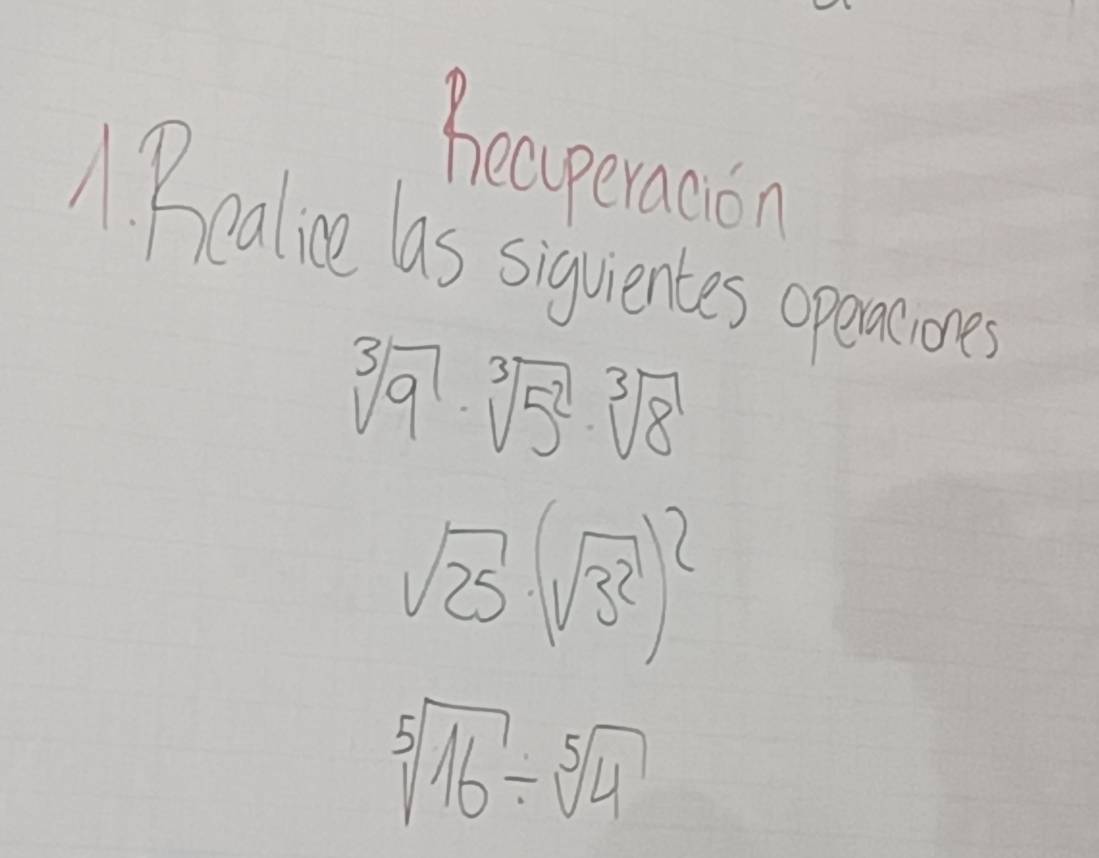 Recuperación
1. Realice las siguientes operaciones
∛9 · ∛5² · ∛8
√25 · (√3²)²
⁵√16 ÷ ⁵√4